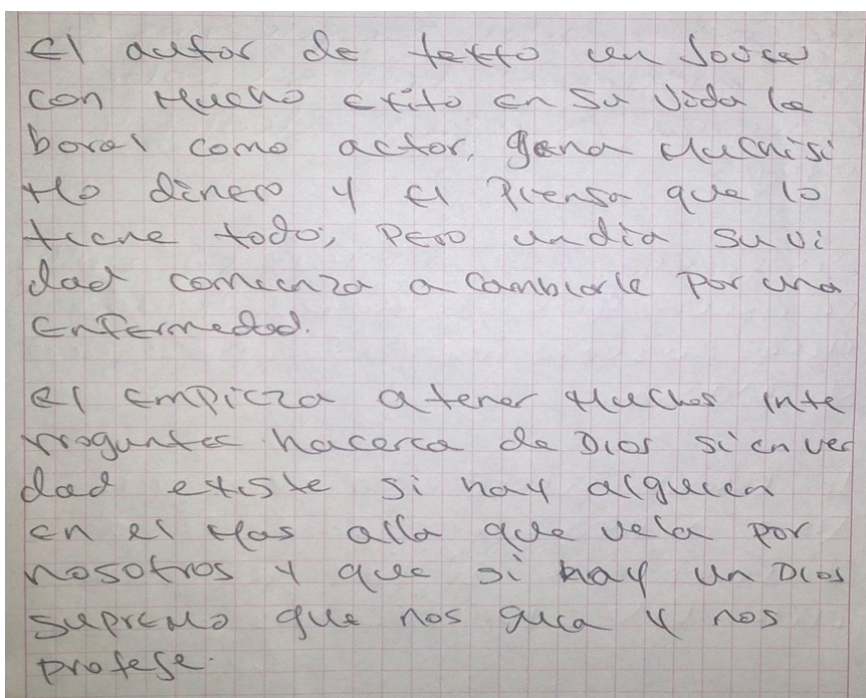 El autor de texto un Joven
con Mucho exito en su vida la
boral como actor, gana Muchisi
Mo dinero y el Piensa que lo
tiene todo, Pero un dia su vi
dad comienza a cambiarle por una
Enfermedad.
El Empieza a tener Muchos inte
rrogantes hacerca de Dios si en ver
dad existe si hay alguien
en el Mas alla que vela por
nosotros y que si hay un Dios
supremo que nos guia y nos
protege.